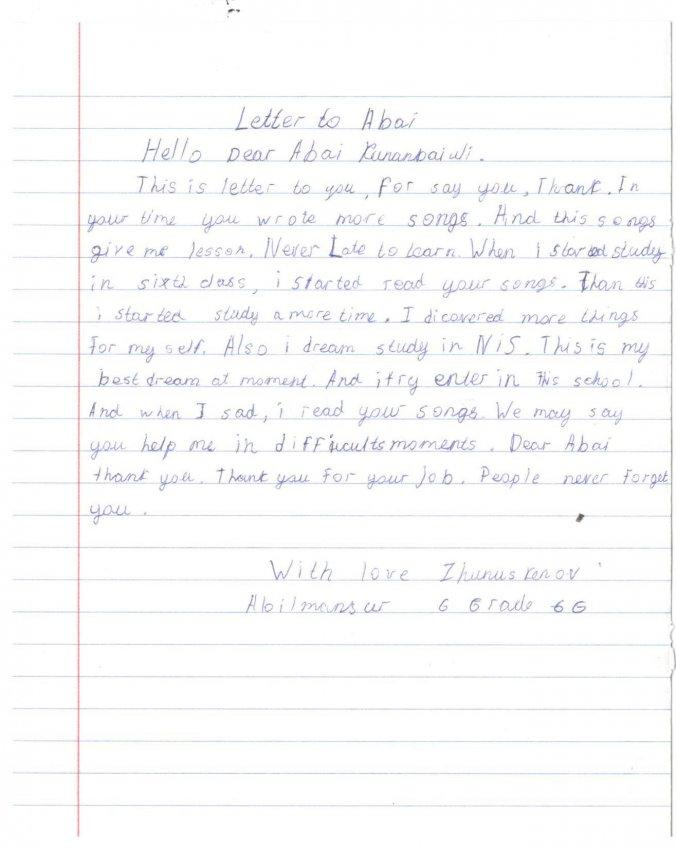 Letter to Abai
Hello Dear Abai Kunanbaiuli.
This is letter to you, for say you, Thank. In
your time you wrote more songs. And this songs
give me lesson. Never Late to learn. When i started study
in sixth class, i started read your songs. Than this
i started study a more time. I dicovered more things
for my self. Also i dream study in NiS. This is my
best dream at moment. And i try enter in this school.
And when I sad, i read your songs. We may say
you help me in difficults moments. Dear Abai
thank you. Thank you for your job. People never forget
you.
With love Zhunuskenov
Abilmansur 6 Grade 6G